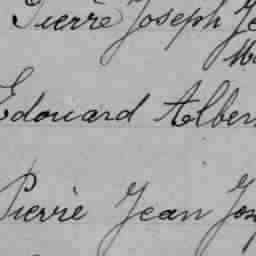 Pierre Joseph Je
Edouard Alber
Pierre Jean Jos